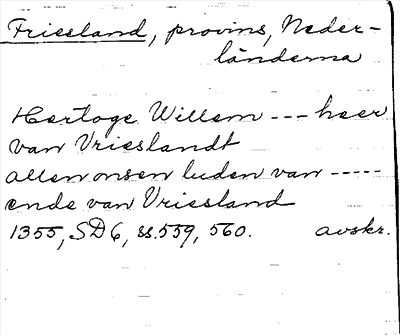 Friesland, provins, Neder-
länderna
Hertoge Willem --- heer
van Vrieslandt
allen onsen luden van -----
ende van Vriesland
1355, SD6, ss.559, 560. avskr.